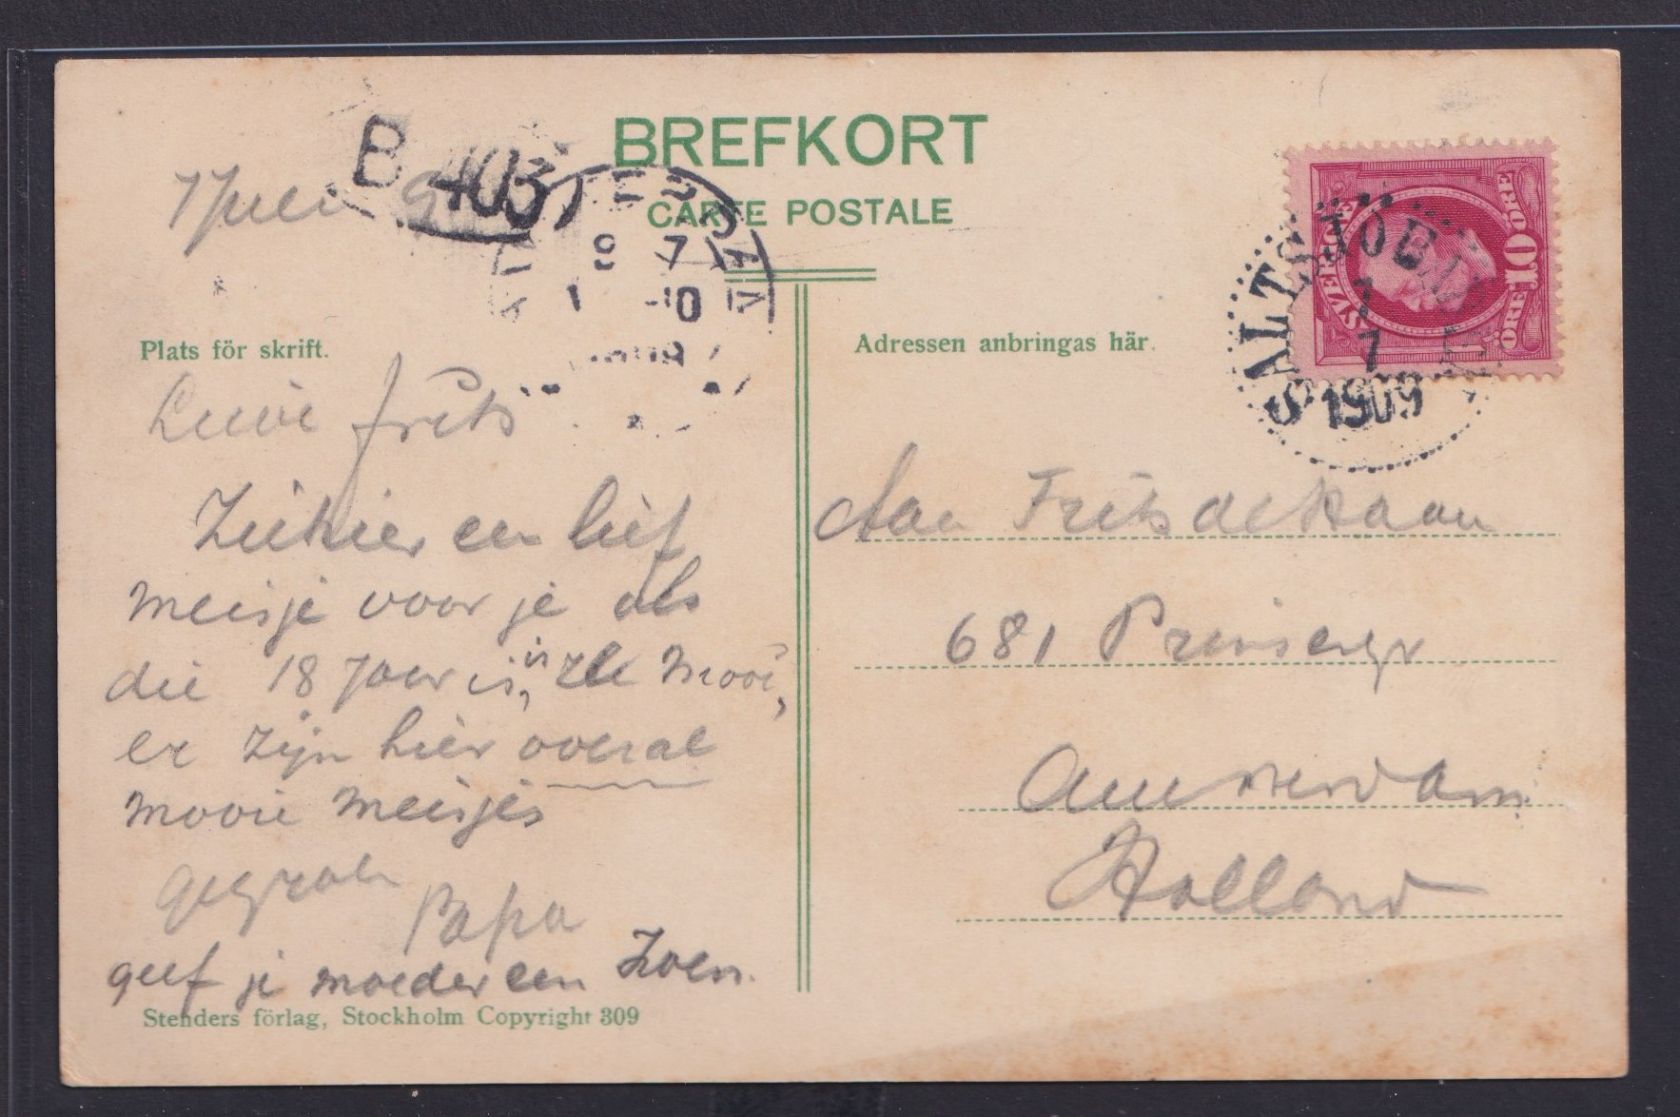 BREFKORT
CARTE POSTALE
B 403
7 Juli
AMSTERDAM
9 7
1 -10
SVERIGE
10 ÖRE
ÖRE
SALTSJÖBADEN
1
7
1909
Plats för skrift.
Adressen anbringas här.
Lieve Frits
Ziehier een lief
meisje voor je als
die 18 jaar is, is ze mooi,
er zijn hier overal
mooie meisjes
gegroet
Papa
geef je moeder een zoen.
Stenders förlag, Stockholm Copyright 309
Aan Frits de Haan
681 Prinsengr
Amsterdam
Holland